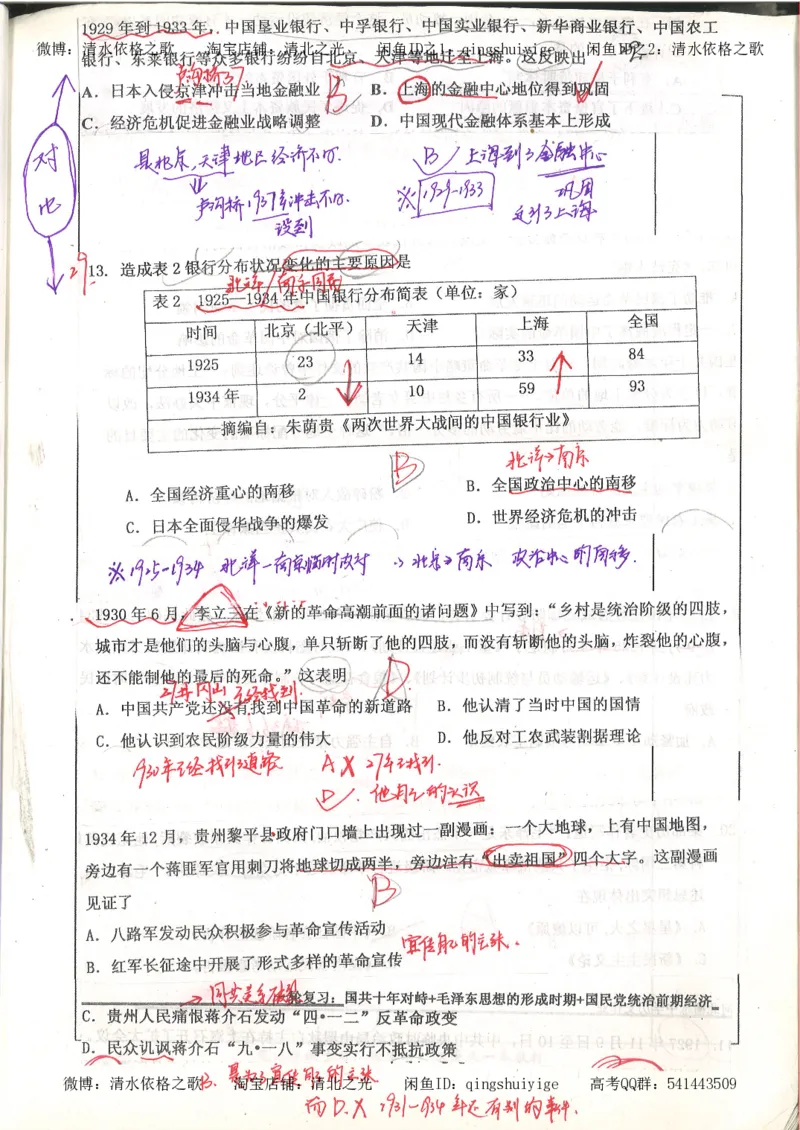 1929年到1933年，中国垦业银行、中孚银行、中国实业银行、新华商业银行、中国农工
微博：清水依格之歌 淘宝店铺：清北之光 闲鱼ID之1：qingshuiyige 闲鱼ID之2：清水依格之歌
银行、东莱银行等众多银行纷纷自北京、天津等地迁至上海。这反映出
卢沟桥37
A．日本入侵京津冲击当地金融业
B．上海的金融中心地位得到巩固
B
C．经济危机促进金融业战略调整
D．中国现代金融体系基本上形成
对比
是北京,天津地区经济不好.
卢沟桥1937年冲击不好.
没到
B/上海到了金融中心
※1929-1933
巩固
迁到了上海
29.
13．造成表2银行分布状况变化的主要原因是
北洋/南京国府
表2 1925—1934年中国银行分布简表（单位：家）
时间 北京（北平） 天津 上海 全国
1925 23 14 33 84
1934年 2 10 59 93
摘编自：朱荫贵《两次世界大战间的中国银行业》
B
北洋→南京
A．全国经济重心的南移
B．全国政治中心的南移
C．日本全面侵华战争的爆发
D．世界经济危机的冲击
※1925-1934 北洋—南京临时政府 → 北京→南京 政治中心的南移.
1930年6月，李立三在《新的革命高潮前面的诸问题》中写到：“乡村是统治阶级的四肢，
城市才是他们的头脑与心腹，单只斩断了他的四肢，而没有斩断他的头脑，炸裂他的心腹，
还不能制他的最后的死命。”这表明
D
27井冈山 已经找到.
A．中国共产党还没有找到中国革命的新道路
B．他认清了当时中国的国情
C．他认识到农民阶级力量的伟大
D．他反对工农武装割据理论
1930年已经找到了道路
A X 27年已找到.
D. 他自己的认识
1934年12月，贵州黎平县政府门口墙上出现过一副漫画：一个大地球，上有中国地图，
旁边有一个蒋匪军官用刺刀将地球切成两半，旁边注有“出卖祖国”四个大字。这副漫画
见证了
B
A．八路军发动民众积极参与革命宣传活动
B．红军长征途中开展了形式多样的革命宣传
宣传自己的主张.
→国共关系破裂
轮复习：国共十年对峙+毛泽东思想的形成时期+国民党统治前期经济
C．贵州人民痛恨蒋介石发动“四•一二”反革命政变
D．民众讥讽蒋介石“九•一八”事变实行不抵抗政策
微博：清水依格之歌 淘宝店铺：清北之光 闲鱼ID：qingshuiyige 高考QQ群：541443509
B. 是为了宣传自己的主张
而D.X 1931-1934年还有别的事件.